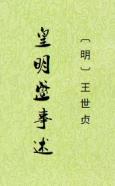 〔明〕王世贞
皇明盛事述